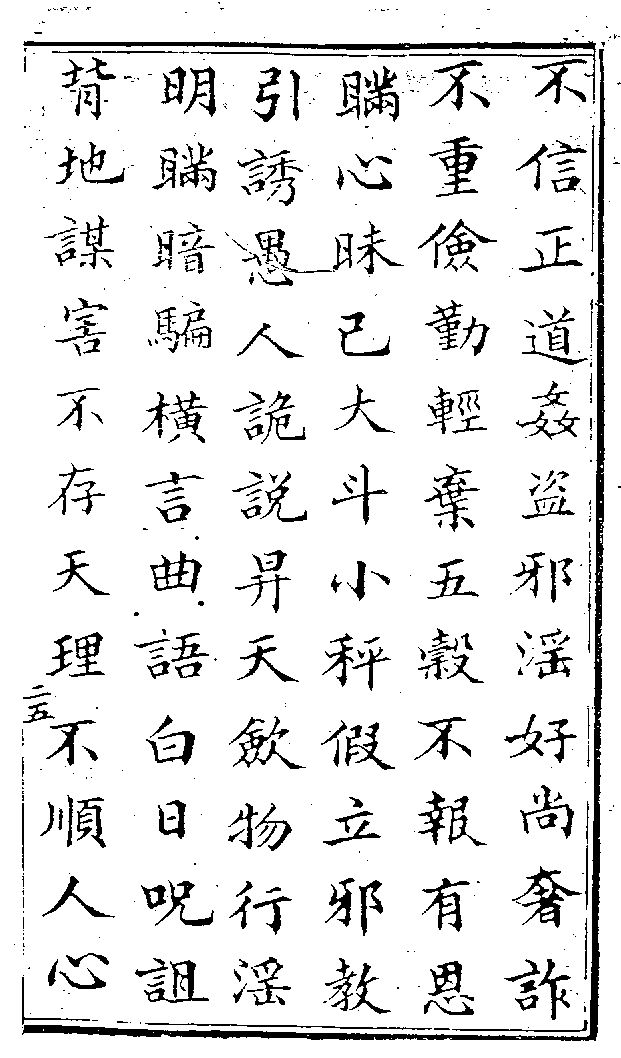 不信正道姦盗邪淫好尚奢詐
不重儉勤輕棄五穀不報有恩
瞞心昧己大斗小秤假立邪教
引誘愚人詭説昇天歛物行淫
明瞞暗騙横言曲語白日呪詛
背地謀害不存天理不順人心
二五